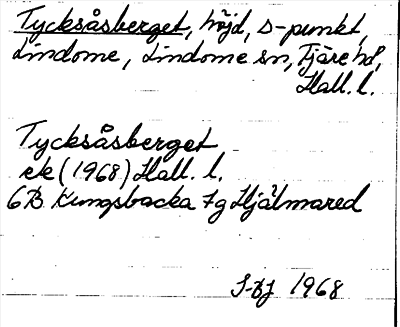 Tycksåsberget, höjd, D-punkt,
Lindome, Lindome sn, Fjäre hd,
Hall. l.
Tycksåsberget
ek (1968) Hall. l.
6B Kungsbacka 7g Hjälmared
1968